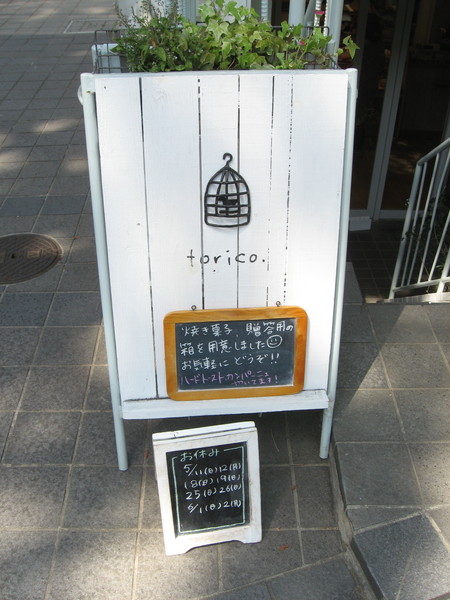 torico.
焼き菓子、贈答用の
箱を用意しました☺
お気軽にどうぞ!!
ハードトースト、カンパーニュ
焼いてます!
お休み
5/11(日)12(月)
18(日)19(月)
25(日)26(月)
6/1(日)2(月)